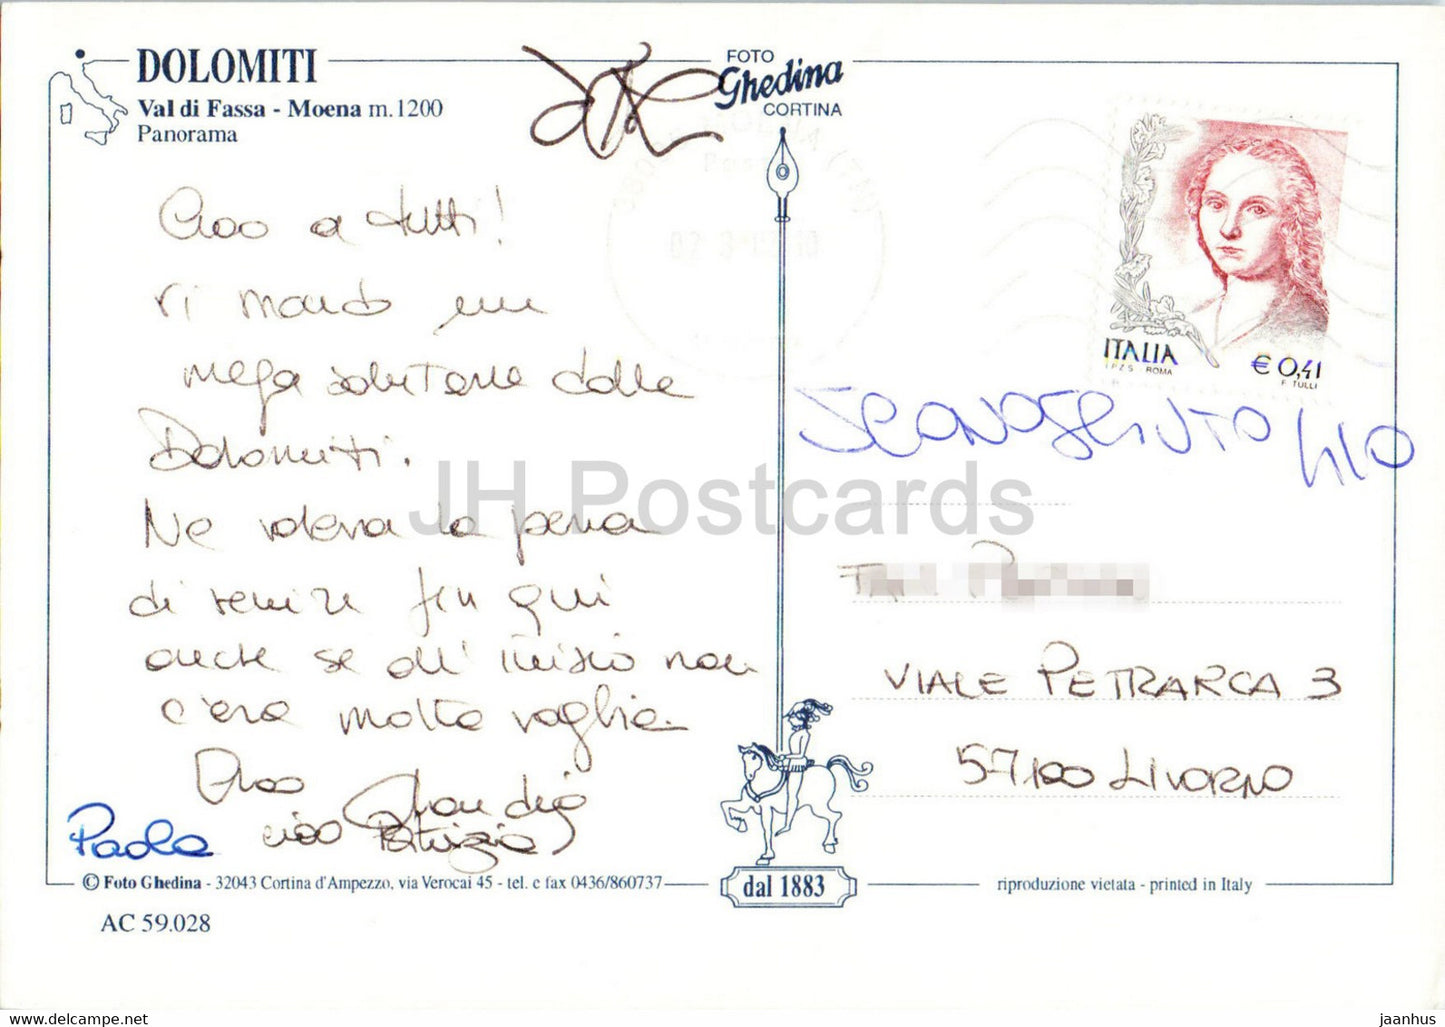 DOLOMITI
Val di Fassa - Moena m.1200
Panorama
FOTO
Ghedina
CORTINA
Ciao a tutti!
vi mando una
mega salutone dalle
Dolomiti.
Ne valeva la pena
di venire fin qui
anche se all'inizio non
c'era molta voglia.
Ciao Claudia
Paola ciao Patrizia
ITALIA
I.P.Z.S. ROMA
€ 0,41
F. TULLI
VIALE PETRARCA 3
57100 LIVORNO
JH Postcards
© Foto Ghedina - 32043 Cortina d'Ampezzo, via Verocai 45 - tel. e fax 0436/860737
dal 1883
riproduzione vietata - printed in Italy
AC 59.028
www.hippostcard.com
jaanhus